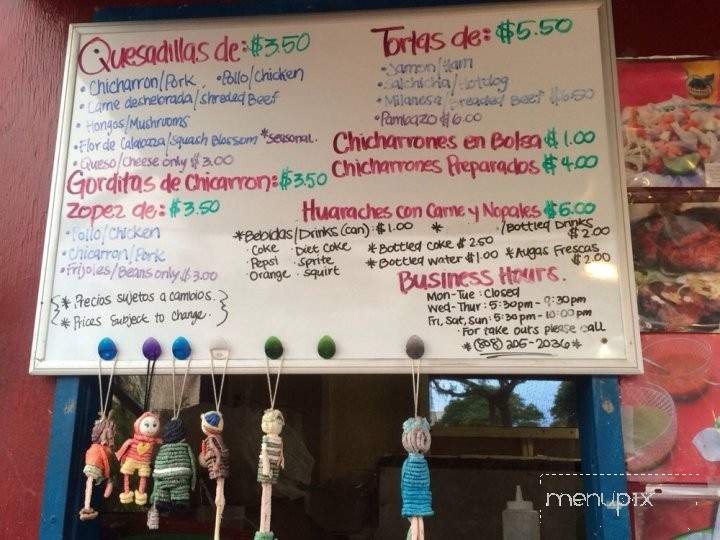 Quesadillas de: $3.50
• Chicharron/Pork • Pollo/Chicken
• Carne deshebrada/shreded Beef
• Hongos/Mushrooms
• Flor de Calabaza/Squash Blossom *seasonal.
• Queso/cheese only $3.00
Gorditas de Chicarron: $3.50
Zopez de: $3.50
• Pollo/Chicken
• Chicarron/Pork
• Frijoles/Beans only $3.00
* Precios sujetos a cambios.
* Prices subject to change.
Tortas de: $5.50
• Jamon/Ham
• Salchicha/Hotdog
• Milanesa/Breaded Beef $6.50
• Pambazo $6.00
Chicharrones en Bolsa $1.00
Chicharrones Preparados $4.00
Huaraches con Carne y Nopales $5.00
*Bebidas/Drinks (can): $1.00
· Coke · Diet Coke
· Pepsi · sprite
· Orange · squirt
* /Bottled Drinks $2.00
* Bottled Coke $2.50
* Bottled water $1.00 *Aguas Frescas $2.00
Business Hours.
Mon-Tue: Closed
Wed-Thur: 5:30pm - 9:30pm
Fri, Sat, Sun: 5:30pm - 10:00pm
· For take outs please call
*(808) 205-2036*
menupix